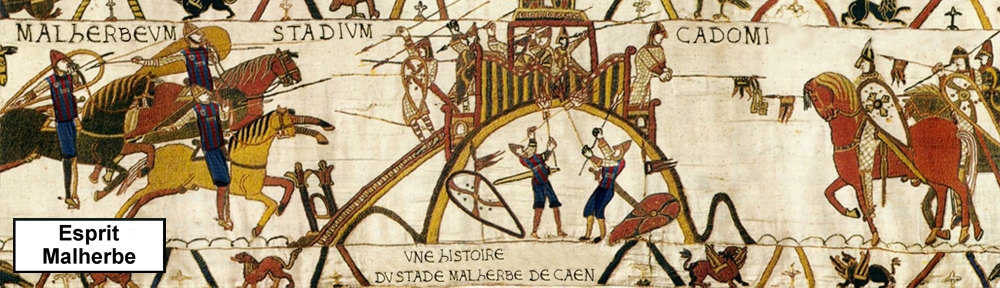 MALHERBEVM STADIVM CADOMI
VNE hISTOIRE
DV STADE MALHERBE DE CAEN
Esprit
Malherbe